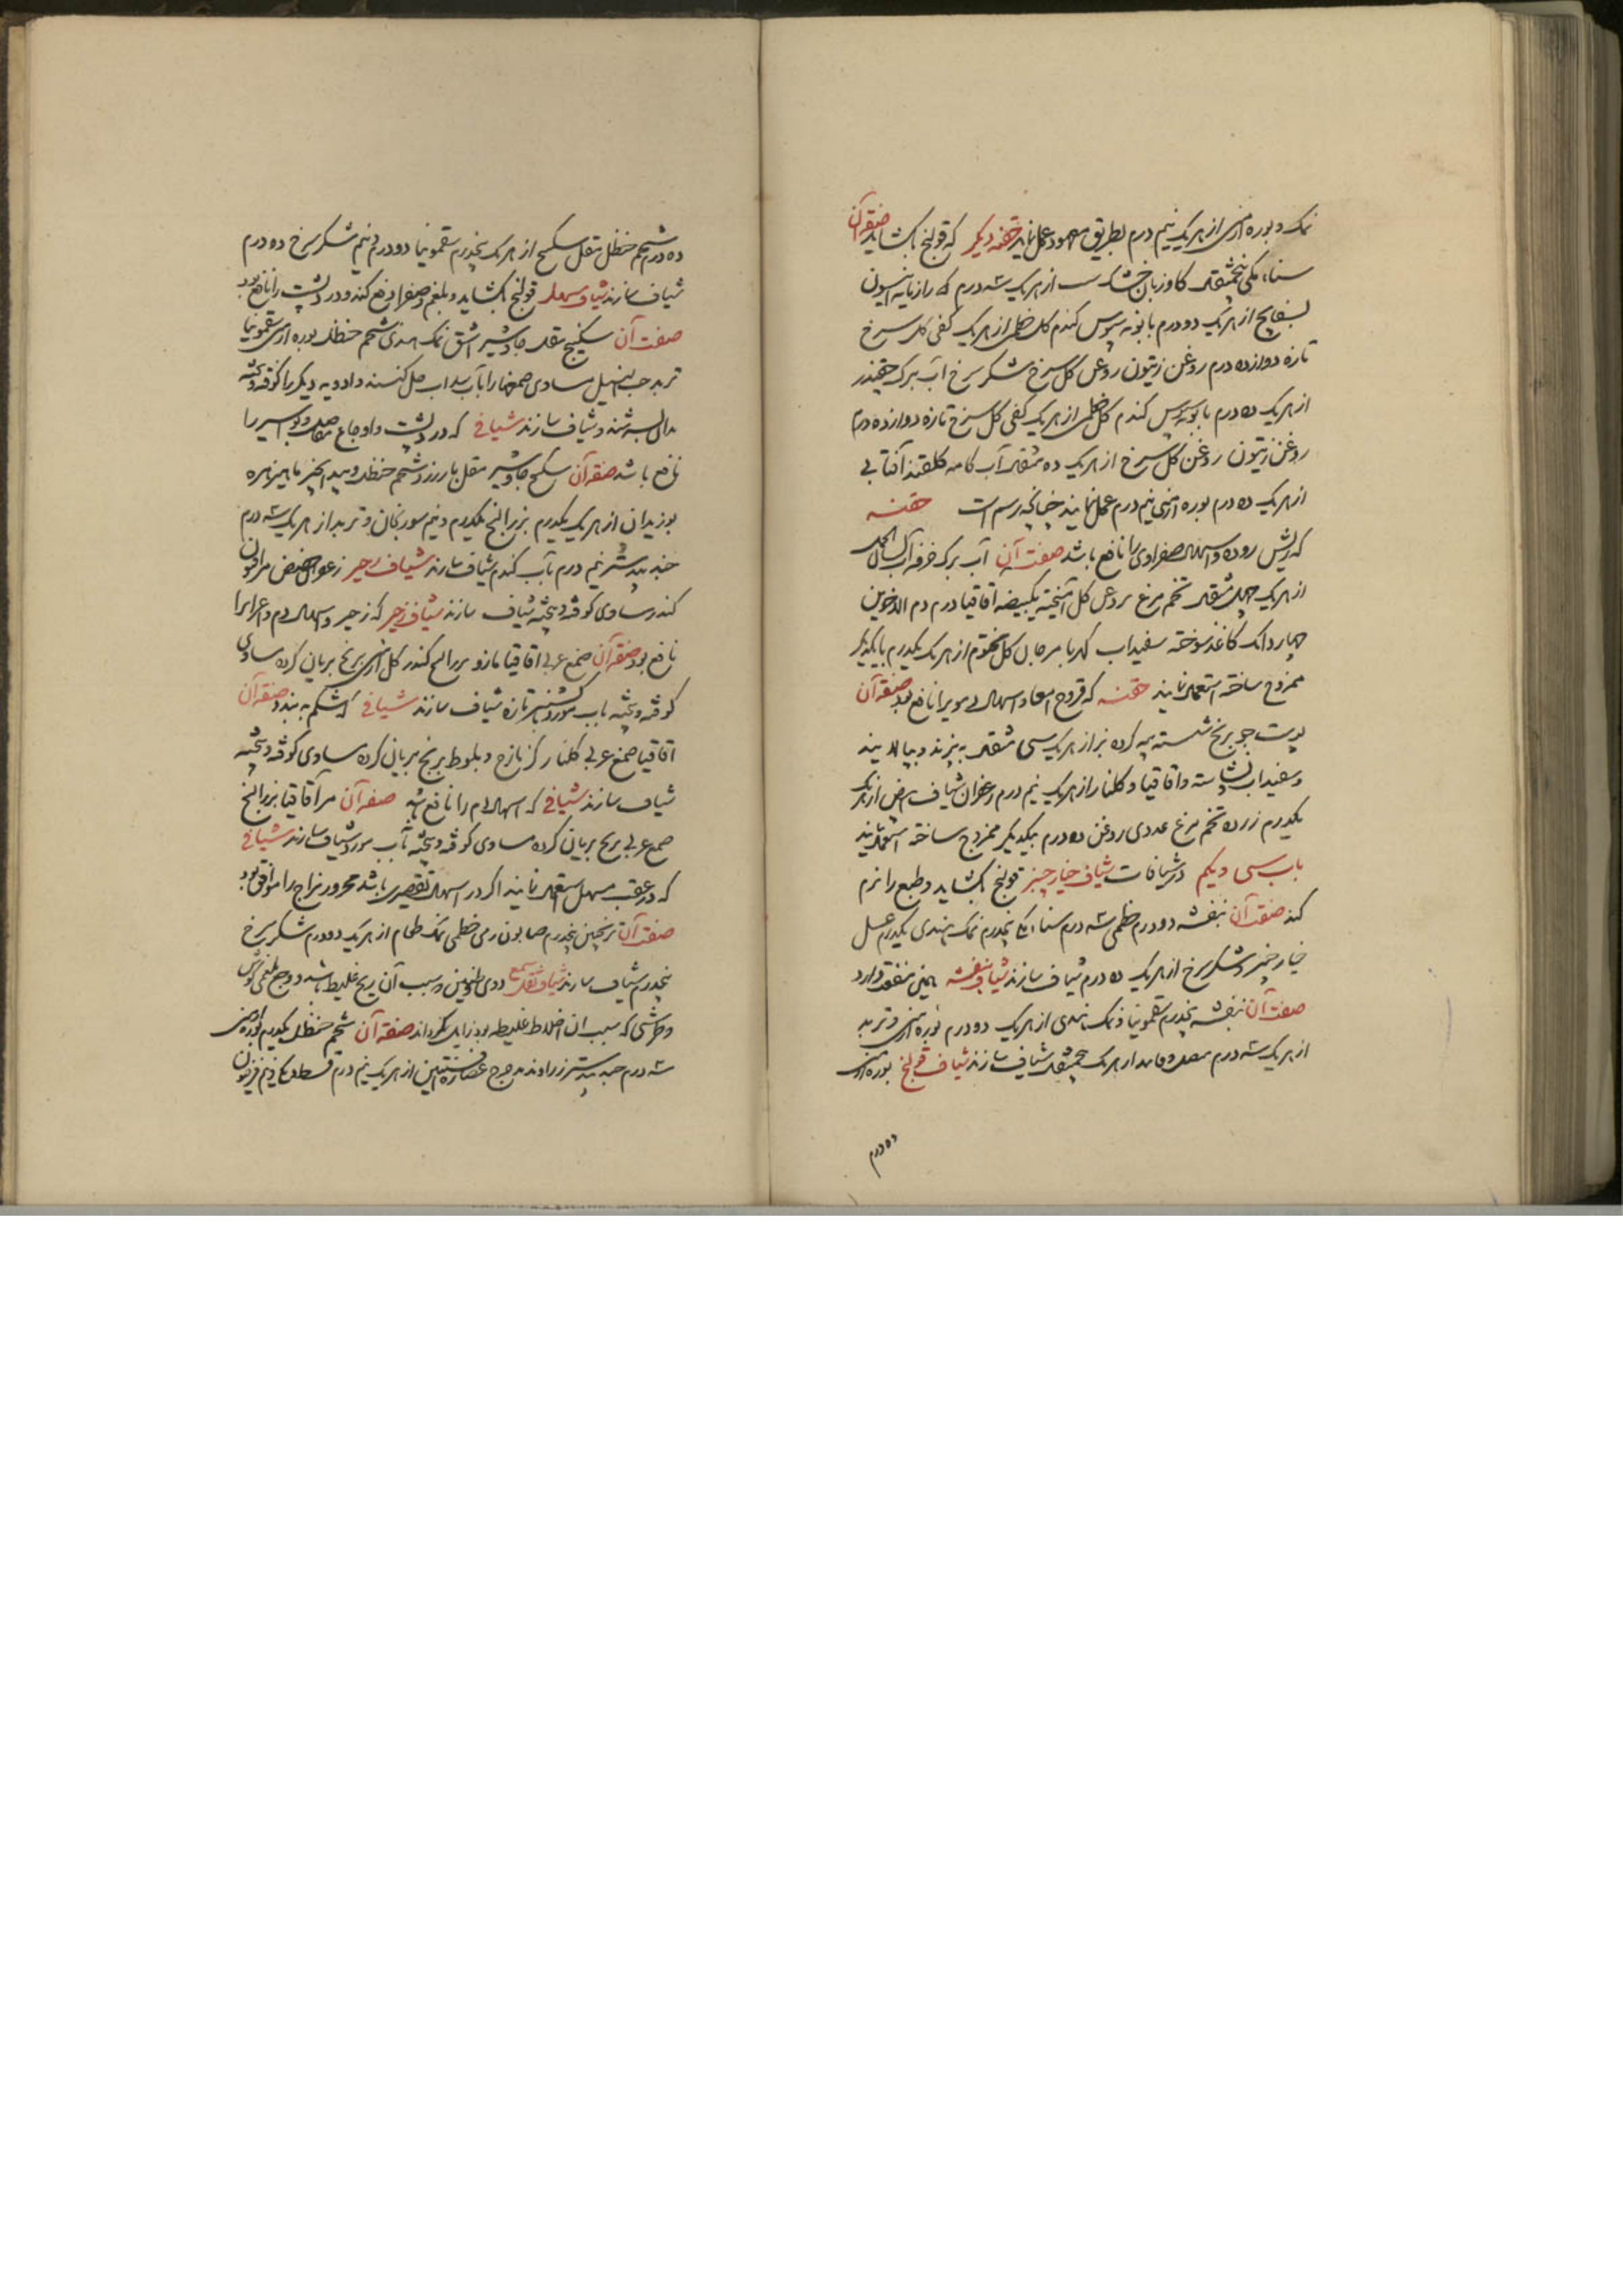 نمک و بوره ارمنی از هریک نیم درم بطریق معهود عمل نمایند حقنه دیکر که قولنج بکشاید صفت آن
سناء مکی پنجمثقال کاوزبان خشک از هریک سه درم رازیانه انیسون
بسفایج از هریک دو درم بابونه سبوس کندم کل خطمی از هریک کفی کل سرخ
تازه دوازده درم روغن زیتون روغن کل سرخ شکر سرخ آب برک چقندر
از هریک ده درم بابونه سبوس کندم کل خطمی از هریک کفی کل سرخ تازه دوازده درم
روغن زیتون روغن کل سرخ از هریک ده مثقال آب کامه کلقند آفتابی
از هریک ده درم بوره ارمنی نیم درم عمل نمایند چنانچه رسم است حقنه
که ریش روده و اسهال صفراوی را نافع باشد صفت آن آب برک خرفه آب لسان الحمل
از هریک چهل مثقال تخم مرغ بروغن کل آمیخته یکبیضه اقاقیا درم دم الاخوین
چهار دانک کاغذ سوخته سفیداب کهربا مرجان کل مختوم از هریک یکدرم بایکدیکر
ممزوج ساخته استعمال نمایند حقنه که قروح امعا و اسهال دمویرا نافع بود صفت آن
پوست جو برنج شسته از هریک سی مثقال به پزند و بپالایند
و سفیداب نشاسته و اقاقیا و کلنار از هریک نیم درم زعفران شیاف ابیض از هریک
یکدرم زرده تخم مرغ عددی روغن ده درم بیکدیکر ممزوج ساخته استعمال نمایند
باب سی و یکم در شیافات شیاف خیارچنبر قولنج بکشاید و طبع را نرم
کند صفت آن بنفشه دو درم خطمی سه درم سناء مکی پنجدرم نمک هندی یکدرم عسل
خیارچنبر و شکر سرخ از هریک ده درم شیاف سازند شیاف بنفشه همین منفعت دارد
صفت آن بنفشه پنجدرم سقمونیا و نمک هندی از هریک دو درم بوره ارمنی و تربد
از هریک سه درم از هریک پنجمثقال شیاف سازند شیاف قولنج بوره ارمنی
ده درم
ده درم شحم حنظل مقل سکبینج از هریک پنجدرم سقمونیا دو درم و نیم شکر سرخ ده درم
شیاف سازند شیاف مسهل قولنج بکشاید و بلغم و صفرا دفع کند و درد پشت را نافع بود
صفت آن سکبینج مقل جاوشیر اشق نمک هندی شحم حنظل بوره ارمنی سقمونیا
تربد حب النیل مساوی صمغها را بآب سداب حل کنند و ادویه دیکر را کوفته و بیخته
بدان بسرشند و شیاف سازند شیافی که درد پشت و اوجاع مفاصل و بواسیر را
نافع باشد صفت آن سکبینج جاوشیر مقل بارزد شحم حنظل و بیدانجیر ماهیزهره
بوزیدان از هریک یکدرم بزرالبنج یکدرم و نیم سورنجان و تربد از هریک سه درم
جندبیدستر نیم درم بآب کندم شیاف سازند شیاف زحیر زعفران حضض مر افیون
کندر مساوی کوفته و بیخته شیاف سازند شیاف زحیر که زحیر و اسهال دم و اعراس را
نافع بود صفت آن صمغ عربی اقاقیا مازو بزرالبنج کندر کل ارمنی برنج بریان کرده مساوی
کوفته و بیخته بآب مورد تازه شیاف سازند شیافی که شکم به بندد صفت آن
اقاقیا صمغ عربی کلنار کزمازج و بلوط برنج بریان کرده مساوی کوفته و بیخته
شیاف سازند شیافی که اسهال دم را نافع بود صفت آن مر اقاقیا بزرالبنج
صمغ عربی برنج بریان کرده مساوی کوفته و بیخته بآب مورد شیاف سازند شیافی
که در عقب مسهل استعمال نمایند اکر در اسهال تقصیری باشد محرور مزاج را موافق بود
صفت آن ترنجبین پنجدرم صابون رمی خطمی نمک طعام از هریک دو درم شکر سرخ
پنجدرم شیاف سازند شیاف ثقل سمع دوی و طنین و سبب آن ریح غلیظ باشد و وجع بلغمی کوش
و طرشی که سبب آن اخلاط غلیظه بود زایل کرداند صفت آن شحم حنظل یکدرم بوره ارمنی
سه درم جندبیدستر زراوند مدحرج عصاره افسنتین از هریک نیم درم قسط فرفیون